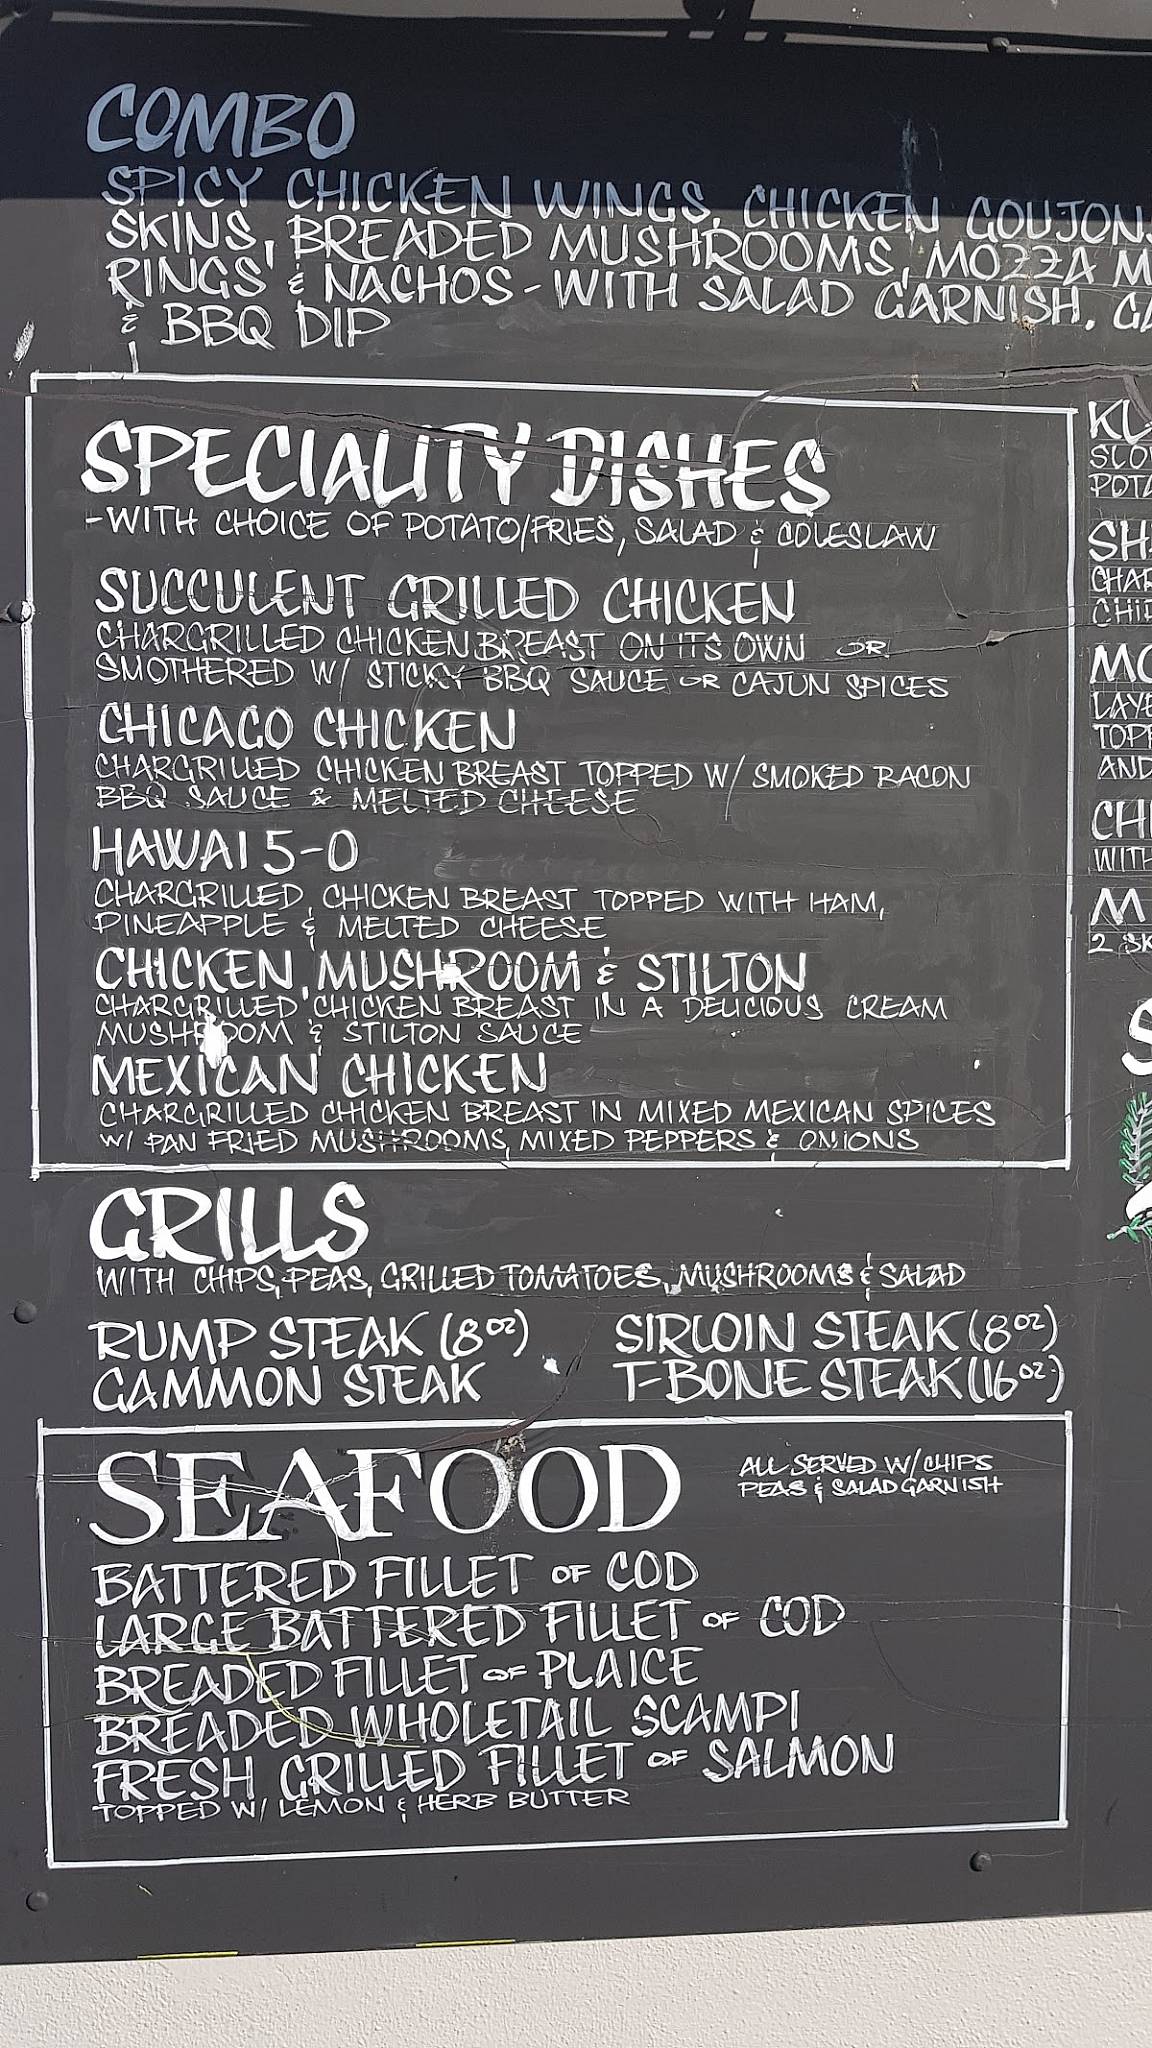 COMBO
SPICY CHICKEN WINGS, CHICKEN GOUJONS
SKINS, BREADED MUSHROOMS, MOZZA M
RINGS & NACHOS - WITH SALAD GARNISH. GA
& BBQ DIP
SPECIALITY DISHES
-WITH CHOICE OF POTATO/FRIES, SALAD & COLESLAW
SUCCULENT GRILLED CHICKEN
CHARGRILLED CHICKEN BREAST ON ITS OWN OR
SMOTHERED W/ STICKY BBQ SAUCE OR CAJUN SPICES
CHICAGO CHICKEN
CHARGRILLED CHICKEN BREAST TOPPED W/ SMOKED BACON
BBQ SAUCE & MELTED CHEESE
HAWAI 5-0
CHARGRILLED, CHICKEN BREAST TOPPED WITH HAM,
PINEAPPLE & MELTED CHEESE
CHICKEN, MUSHROOM & STILTON
CHARGRILLED CHICKEN BREAST IN A DELICIOUS CREAM
MUSHROOM & STILTON SAUCE
MEXICAN CHICKEN
CHARGRILLED CHICKEN BREAST IN MIXED MEXICAN SPICES
W/ PAN FRIED MUSHROOMS, MIXED PEPPERS & ONIONS
GRILLS
WITH CHIPS, PEAS, GRILLED TOMATOES, MUSHROOMS & SALAD
RUMP STEAK (8oz) SIRLOIN STEAK (8oz)
GAMMON STEAK T-BONE STEAK (16oz)
SEAFOOD
ALL SERVED W/ CHIPS
PEAS & SALAD GARNISH
BATTERED FILLET OF COD
LARGE BATTERED FILLET OF COD
BREADED FILLET OF PLAICE
BREADED WHOLETAIL SCAMPI
FRESH GRILLED FILLET OF SALMON
TOPPED W/ LEMON & HERB BUTTER